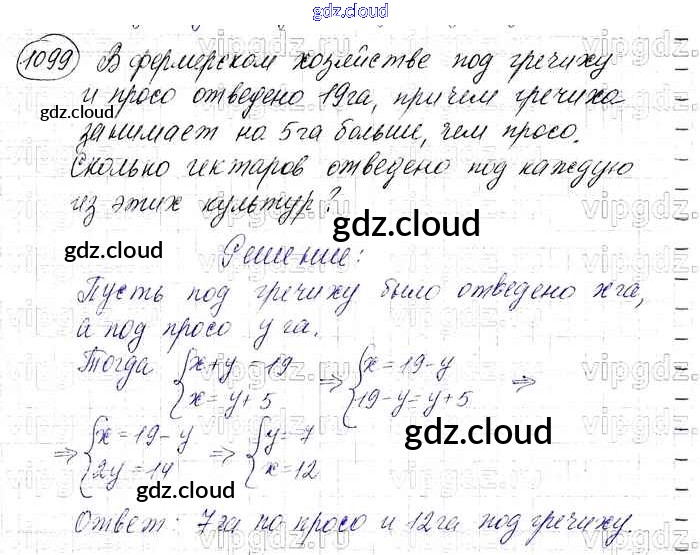 gdz.cloud
1099 В фермерском хозяйстве под гречиху
и просо отведено 19га, причем гречиха
gdz.cloud
занимает на 5га больше, чем просо.
Сколько гектаров отведено под каждую
из этих культур?
gdz.cloud
gdz.cloud
Решение:
Пусть под гречиху было отведено x га,
а под просо y га.
Тогда {x+y=19 x=y+5 ⇒ {x=19-y 19-y=y+5 ⇒
gdz.cloud
⇒ {x=19-y 2y=14 ⇒ {y=7 x=12
gdz.cloud
gdz.cloud
Ответ: 7га по просо и 12га под гречиху.